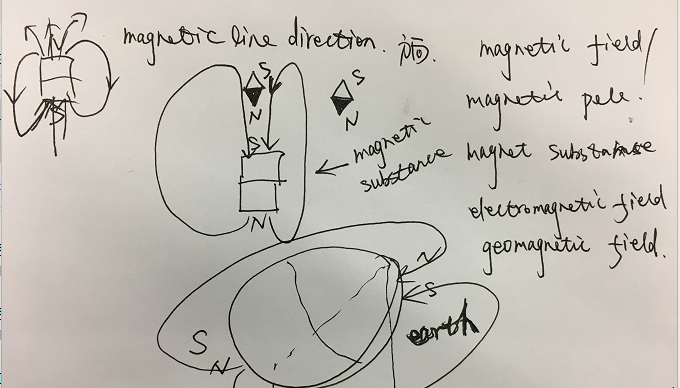 magnetic line direction.
magnetic field/
magnetic pele.
magnet substance
electromagnetic field
geomagnetic field.
N
S
S
N
S
N
S
N
magnetic
substance
N
S
S
N
earth